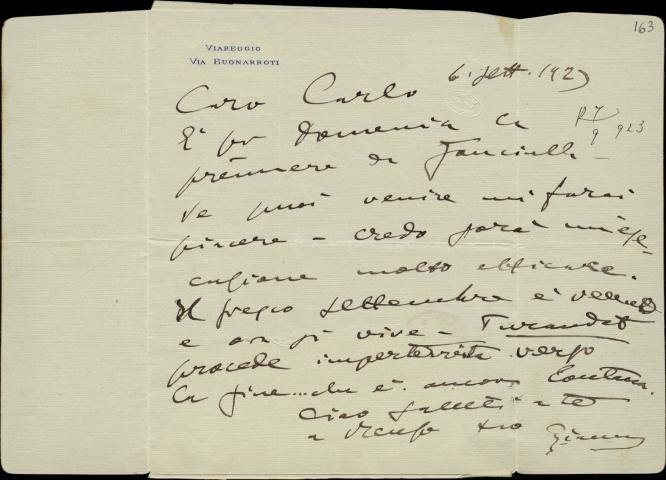 163
VIAREGGIO
VIA BUONARROTI
6. Sett. 1923
Caro Carlo
R 7/9 923
È per Domenica la
première di Fanciulla -
se puoi venire mi farai
piacere - credo sarà un'ese-
cuzione molto efficace.
Il fresco settembre è venuto
e ora si vive - Turandot
procede imperterrita verso
la fine... che è ancora lontana.
Ciao saluti a te
a tuo